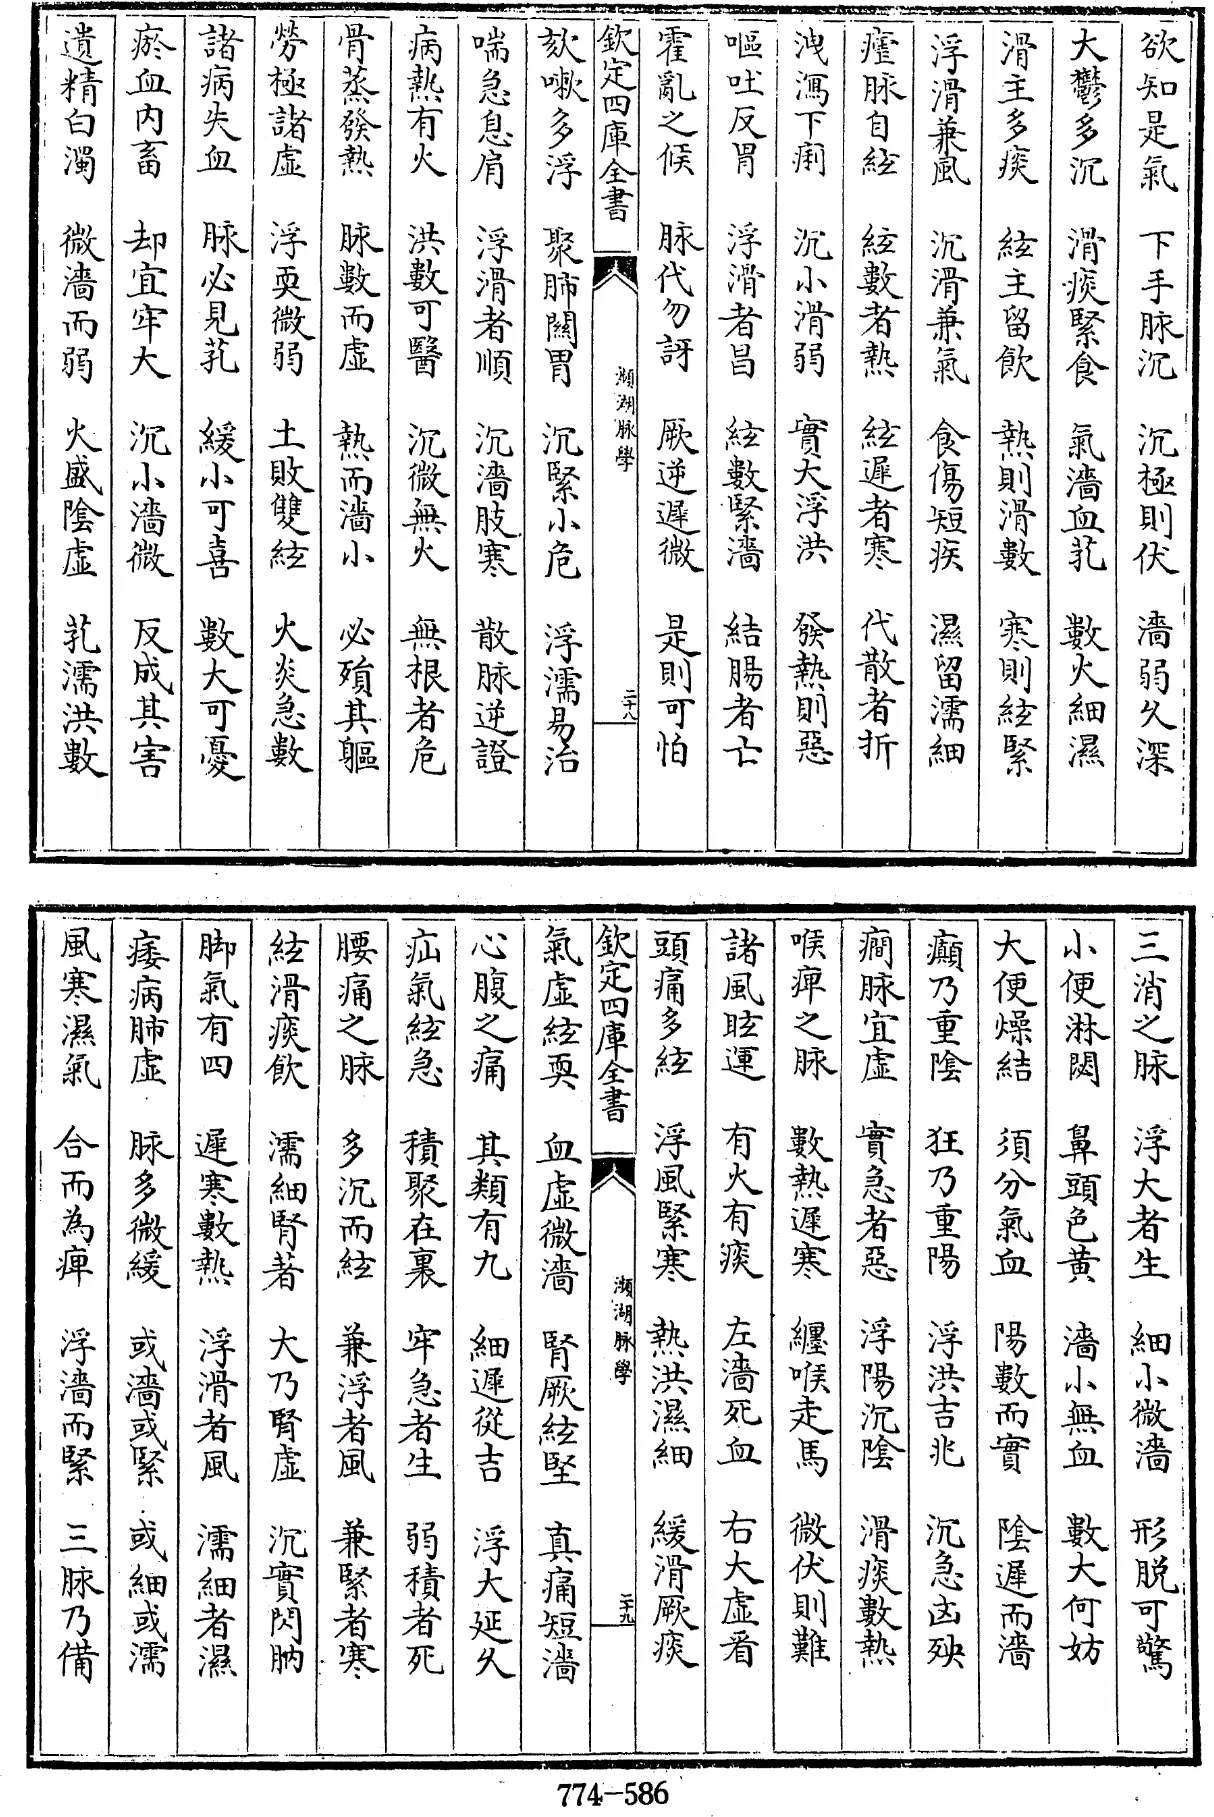 欲知是氣 下手脉沉 沉極則伏 濇弱久深
大鬱多沉 滑痰緊食 氣濇血芤 數火細濕
滑主多痰 絃主留飲 熱則滑數 寒則絃緊
浮滑兼風 沉滑兼氣 食傷短疾 濕留濡細
瘧脉自絃 絃數者熱 絃遲者寒 代散者折
洩瀉下痢 沉小滑弱 實大浮洪 發熱則惡
嘔吐反胃 浮滑者昌 絃數緊濇 結腸者亡
霍亂之候 脉代勿訝 厥逆遲微 是則可怕
欽定四庫全書
瀕湖脉學
二十八
欬嗽多浮 聚肺關胃 沉緊小危 浮濡易治
喘急息肩 浮滑者順 沉濇肢寒 散脉逆證
病熱有火 洪數可醫 沉微無火 無根者危
骨蒸發熱 脉數而虛 熱而濇小 必殞其軀
勞極諸虛 浮耎微弱 土敗雙絃 火炎急數
諸病失血 脉必見芤 緩小可喜 數大可憂
瘀血内畜 却宜牢大 沉小濇微 反成其害
遺精白濁 微濇而弱 火盛陰虛 芤濡洪數
三消之脉 浮大者生 細小微濇 形脱可驚
小便淋閟 鼻頭色黄 濇小無血 數大何妨
大便燥結 須分氣血 陽數而實 陰遲而濇
癲乃重陰 狂乃重陽 浮洪吉兆 沉急凶殃
癇脉宜虛 實急者惡 浮陽沉陰 滑痰數熱
喉痺之脉 數熱遲寒 纒喉走馬 微伏則難
諸風眩運 有火有痰 左濇死血 右大虛看
頭痛多絃 浮風緊寒 熱洪濕細 緩滑厥痰
欽定四庫全書
瀕湖脉學
二十九
氣虛絃耎 血虛微濇 腎厥絃堅 真痛短濇
心腹之痛 其類有九 細遲從吉 浮大延久
疝氣絃急 積聚在裏 牢急者生 弱積者死
腰痛之脉 多沉而絃 兼浮者風 兼緊者寒
絃滑痰飲 濡細腎著 大乃腎虛 沉實閃肭
脚氣有四 遲寒數熱 浮滑者風 濡細者濕
痿病肺虛 脉多微緩 或濇或緊 或細或濡
風寒濕氣 合而為痺 浮濇而緊 三脉乃備
774-586